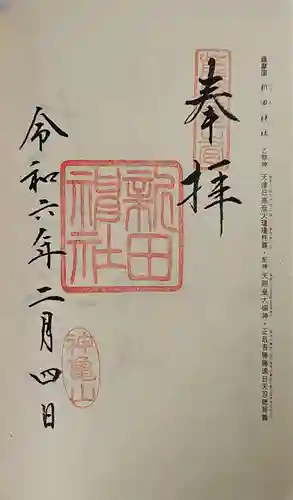 薩摩國 新田神社 ご祭神 天津日高彦火瓊瓊杵尊・配神 天照皇大御神・正哉吾勝勝速日天忍穂耳尊
奉拝
新田
神社
令和六年二月四日
神亀山